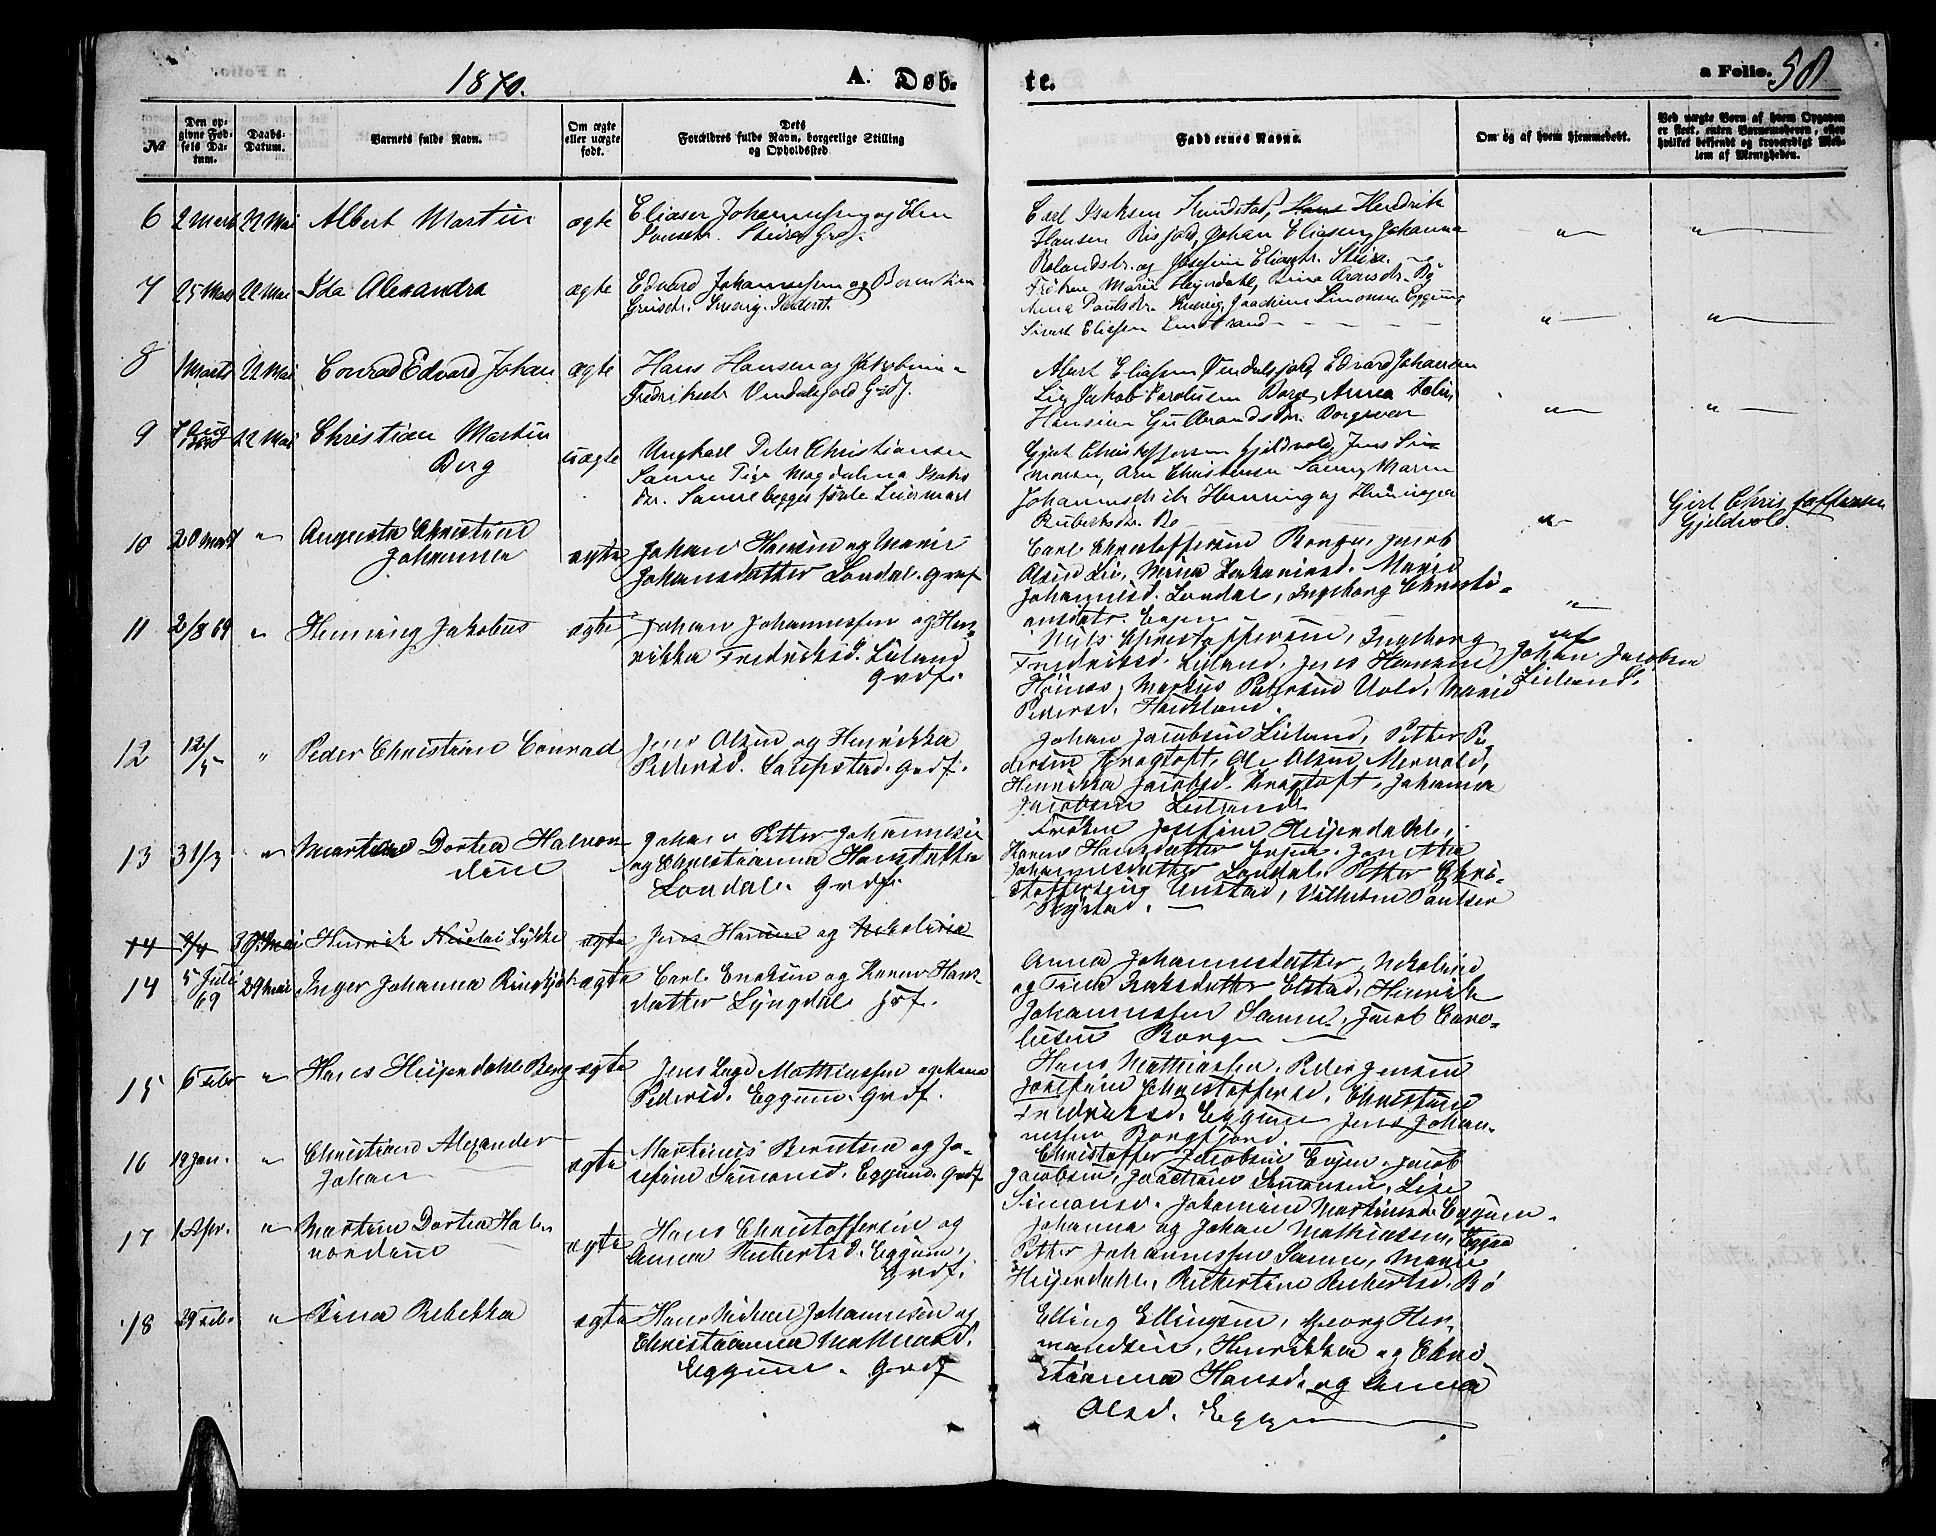 1870.
A. Døb-
te.
a Folio. 50
№
Den op-
givne Fød-
sels Da-
tum.
Daabs-
Datum.
Barnets fulde Navn.
Om ægte
eller uægte
født.
Dets
Forældres fulde Navn, borgerlige Stilling
og Opholdssted
Faddernes Navne.
Om og af hvem hjemmedøbt.
Ved uægte Børn af hvem Opgaven
er skeet, enten Barnemoderen, eller
hvilket bekjendt og troværdigt Med-
lem af Menigheden.
6 2 Marts 22 Mai Albert Martin ægte Eliaser Johannessen og Elen
Steira Grdf.
Carl Isaksen Hans Hendrik
Hansen Risfjord, Johan Eliasen, Johanna
Rolandsdr. og Josefine Eliasdr. Steira.
7 25 Mars 22 Mai Ida Alexandra ægte Edvard Johannessen og
Frøken Marie Heyerdahl,
Anna Paulsdr. Joachim Simonsen Eggum
Sivert Eliassen
8 Marts 22 Mai Conrad Edvard Johan ægte Hans Hansen og Jakobine
Fredriksdr. Vendalsfjord Grdf.
Albert Eliassen Vendalsfjord, Edvard Johansen
Lie, Jakob Karolusen Borge, Anna
Hansine Gulbrandsdr. Borgevær
9 7 Aug 22 Mai Christian Martin
Berg
uægte Ungkarl Peter Christiansen
Sanne Pige Magdalena Isaks
dr. Sanne begges første Leiermaal
Gjert Christoffersen Gjeldvold, Jens Si-
monsen, Arn Christensen Sanne, Maren
Johannesdr. Henning og Henninga
Rubertsdr. Bø
Gjert Christoffersen
Gjeldvold.
10 20 Marts " Augusta Christine
Johanna
ægte Johan Hansen og Marie
Johansdatter Londal. Grdf
Carl Christoffersen Borge, Jacob
Olsen Lie, Mina Zakariasd. Marie
Johannesd. Londal, Ingeborg Christi-
ansdatr. Evjen
11 2/8 69 " Henning Jakobus ægte Johan Johannessen og Hen-
rikka Fredriksd. Liland
Grdf.
Nils Christoffersen, Ingeborg
Fredriksd. Liland, Jens Hansen
Markus Pedersen Vold, Marie
Pedersd. Haukland.
af
Johan Jacobsen
Lieland.
12 12/5 " Peder Christian Conrad Jens Olsen og Henrikka
Pedersd. Grdf.
Johan Jacobsen Lieland, Petter Pe-
dersen Kragtoft, Ole Olsen Mervold,
Henrikka Jacobsd. Kragtoft, Johanna
Jacobsen Lieland
13 31/3 " Martine Dortea Halvor-
dine
Johan Petter Johannesen
og Christianna Hansdatter
Londal. Grdf.
Frøken Josefine Heyerdahl,
Hanna Hansdatter Evjen,
Johannesdatter Londal, Petter Chri-
stoffersen Unstad, Vilhelm Paulsen
14 9/4 Mai Henrik Nicolai Lykke ægte Jens Hansen og Nikoline
14 5 Juli
69
29 Mai Inger Johanna Ringkjøb ægte Carl Eriksen og Karen Hans-
datter Lyngdal Grf.
Anna Johannesdatter, Nikoline
og Trine Isaksdatter Elstad, Henrik
Johannessen Sanne, Jacob Caro-
lusen Borge
15 6 Febr " Hans Heyerdahl Berg ægte Jens Lage Mathiassen og Anna
Pedersd. Eggum. Grdf.
Hans Mathiassen, Peder Jensen
Josefine Christoffersd, Christine
Fredriksd. Eggum Jens Johan-
nessen Borgfjord.
16 19 Jan. " Christiand Alexander
Johan
ægte Martinus Berntsen og Jo-
sefine Simonsd. Eggum. Grdf
Christoffer Jacobsen Evjen, Jacob
Jacobsen, Joachim Simonsen, Lise
Simonsd. Johannine Martinsd. Eggum.
17 1 Apr. " Martine Dortea Hal-
vordine
ægte Hans Christoffersen og
Anna Rubertsd. Eggum,
Grdf.
Johanna og Johan Mathiassen, Eggum
Petter Johannessen Sanne, Marie
Heyerdahl, Rubertine Rubertsd. Bø
18 29 Febr. " Stina Rebekka ægte Hans Johannesen og
Christianna Mathiasd.
Eggum. Grdf
Elling Ellingsen, Georg Her-
mandsen, Henrikka og Chri-
stianna Hansd. og Anna
Olsd. Eggum